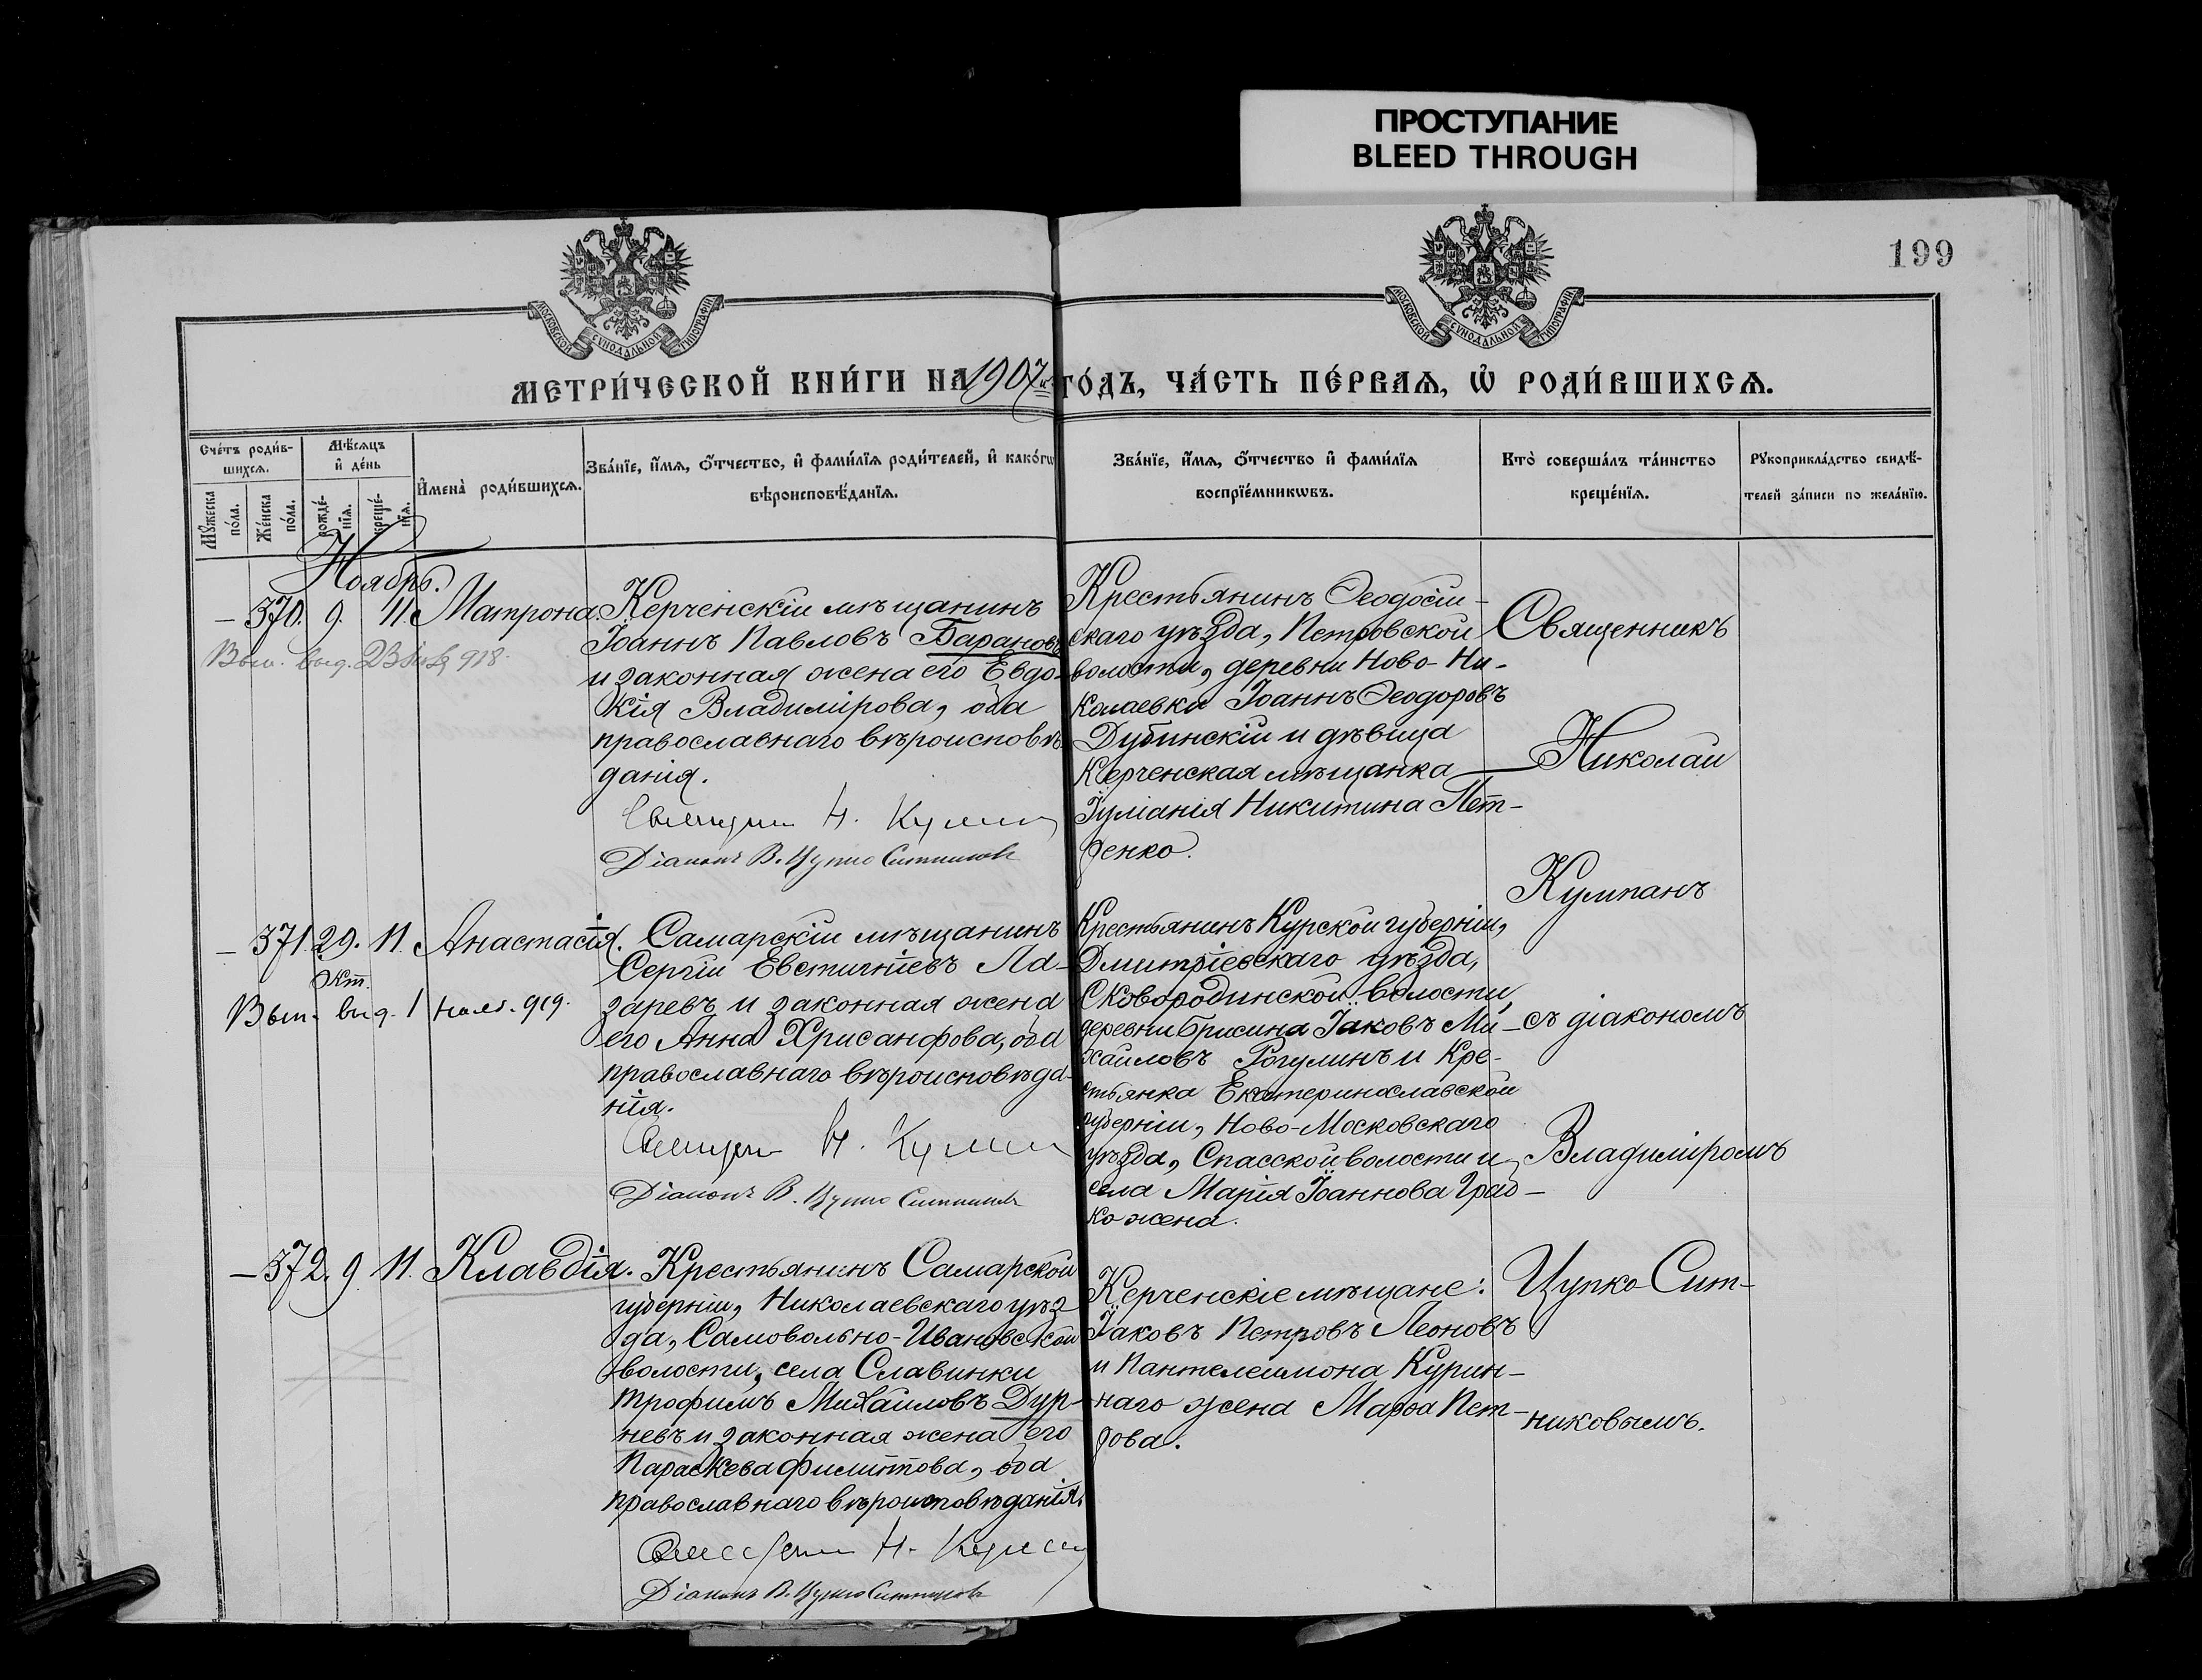 ПРОСТУПАНИЕ
BLEED THROUGH
199
МОСКОВСКОЙ СѴНОДАЛЬНОЙ ТИПОГРАФІИ
МОСКОВСКОЙ СѴНОДАЛЬНОЙ ТИПОГРАФІИ
МЕТРИ́ЧЕСКОЙ КНИ́ГИ НА 1907й ГО́ДЪ, ЧА́СТЬ ПЕ́РВАѦ, Ѡ҆ РОДИ́ВШИХСѦ.
Сче́тъ роди́в-
шихсѧ.
Мѣ́сѧцъ
и҆ де́нь
Мꙋ́жеска
по́ла.
Же́нска
по́ла.
рожде́-
нїѧ.
креще́-
нїѧ.
И҆мена̀ роди́вшихсѧ.
Зва́нїе, и҆́мѧ, ѻ҆́тчество, и҆ фами́лїѧ роди́телей, и҆ како́гѡ
вѣроисповѣ́данїѧ.
Зва́нїе, и҆́мѧ, ѻ҆́тчество и҆ фами́лїѧ
воспрїе́мникѡвъ.
Кто̀ соверша́лъ та́инство
креще́нїѧ.
Рꙋкоприкла́дство свидѣ́-
телей за́писи по жела́нїю.
Ноябрь.
— 370. 9. 11. Матрона.
Вып. выд. 918.
Керченскій мѣщанинъ
Іоаннъ Павловъ Барановъ
и законная жена его Евдо-
кія Владимірова, оба
православнаго вѣроисповѣ
данія.
Священникъ Н. Кумпан
Діаконъ В. Цупко Ситниковъ
Крестьянинъ Ѳеодосій-
скаго уѣзда, Петровской
волости, деревни Ново-Ни-
колаевки Іоаннъ Ѳеодоровъ
Дубинскій и дѣвица
Керченская мѣщанка
Іуліанія Никитина Пет-
ренко.
Священникъ
Николай
Кумпанъ
съ діакономъ
Владиміромъ
Цупко-Сит-
никовымъ.
— 371. 29. 11. Анастасія.
Окт.
Вып. выд. 1 919.
Самарскій мѣщанинъ
Сергій Евстигніевъ Ла-
заревъ и законная жена
его Анна Хрисанфова, оба
православнаго вѣроисповѣда-
нія.
Священ Н. Кумпан
Діаконъ В. Цупко Ситниковъ
Крестьянинъ Курской губерніи,
Дмитріевскаго уѣзда,
Сковородинской волости,
деревни Іаковъ Ми-
хайловъ Рогулинъ и кре-
стьянка Екатеринославской
губерніи, Ново-Московскаго
уѣзда, Спасской волости и
села Марія Іоаннова Град-
ко жена.
— 372. 9. 11. Клавдія.
Крестьянинъ Самарской
губерніи, Николаевскаго уѣз
да, Самовольно-Ивановской
волости, села Славинки
Трофимъ Михайловъ Дур-
невъ и законная жена его
Параскева Филиппова, оба
православнаго вѣроисповѣданія.
Священник Н. Кумпан
Діаконъ В. Цупко Ситниковъ
Керченскіе мѣщане:
Іаковъ Петровъ Леоновъ
и Пантелеимона Курин-
наго жена Марѳа Пет-
рова.